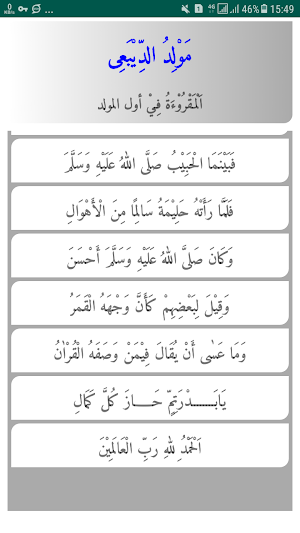 0 KB/s 4G 46% 15:49
مَوْلِدُ الدِّيْبَعِى
اَلْمَقْرُوْءَةُ فِيْ أول المولد
فَبَيْنَمَا الْحَبِيْبُ صَلَّى اللهُ عَلَيْهِ وَسَلَّمَ
فَلَمَّا رَأَتْهُ حَلِيْمَةُ سَالِمًا مِنَ الْأَهْوَالِ
وَكَانَ صَلَّى اللهُ عَلَيْهِ وَسَلَّمَ أَحْسَنَ
وَقِيْلَ لِبَعْضِهِمْ كَأَنَّ وَجْهَهُ الْقَمَرُ
وَمَا عَسٰى أَنْ يُقَالَ فِيْمَنْ وَصَفَهُ الْقُرْاٰنُ
يَابَـــــــدْرَتِمٍّ حَـــازَ كُلَّ كَمَالِ
اَلْحَمْدُ لِلهِ رَبِّ الْعَالَمِيْنَ